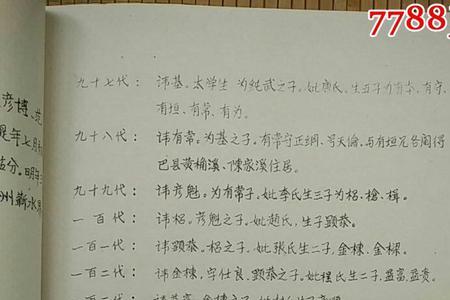 7788
彦博、范
是年七月
始分。明年
州蕲水
九十七代：讳基。太学生 为纯武之子。妣唐氏。生五子为有本、有守、
有垣、有常、有为。
九十八代：讳有常。为基之子。有常守正纲、号天伦。与有垣兄各阁得
巴县黄桷溪、陈家溪住居。
九十九代：讳彦魁。为有常子。妣李氏生三子为梠、槍、楫。
一百代：讳梠。彦魁之子。妣赵氏，生子顕恭。
一百一代：讳顕恭。梠之子。妣张氏生二子，金棟、金樑。
一百二代：讳金棟，字仕良、顕恭之子。妣程氏生二子，益富、益贵。